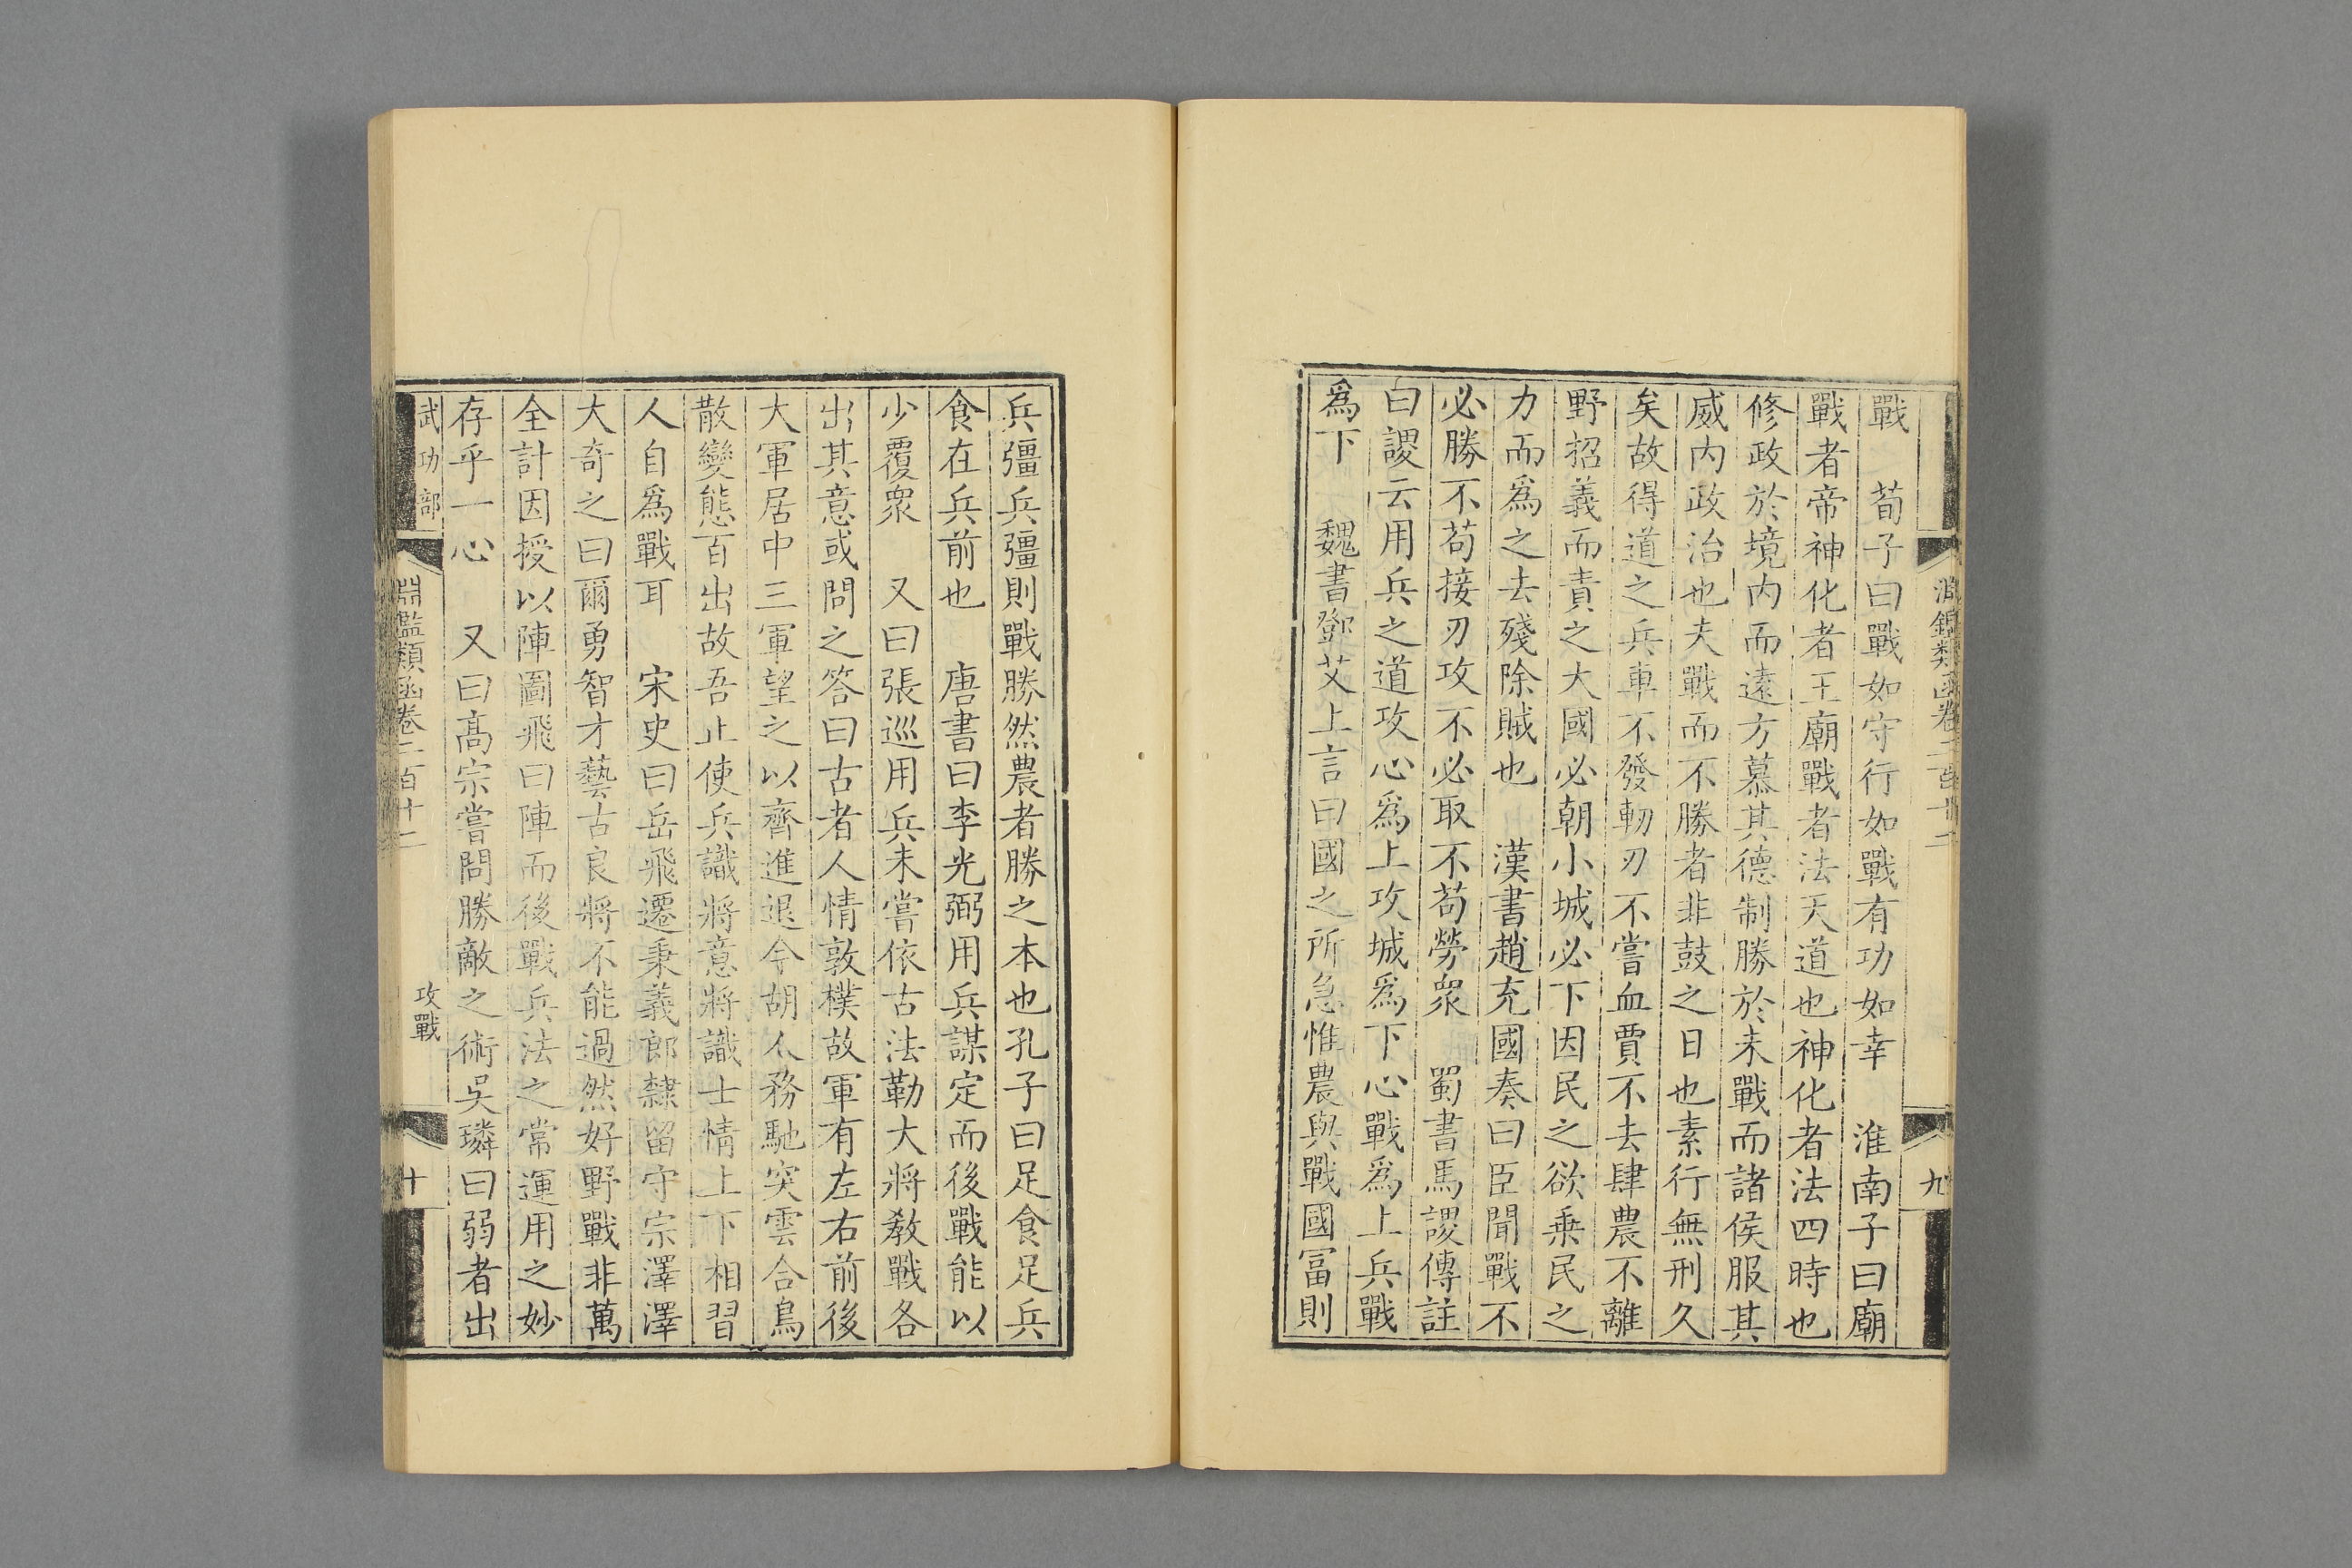 淵鑑類函卷二百十二
九
戰　荀子曰戰如守行如戰有功如幸　淮南子曰廟
戰者帝神化者王廟戰者法天道也神化者法四時也
修政於境內而遠方慕其德制勝於未戰而諸侯服其
威內政治也夫戰而不勝者非鼓之日也素行無刑久
矣故得道之兵車不發軔刃不嘗血賈不去肆農不離
野招義而責之大國必朝小城必下因民之欲乗民之
力而爲之去殘除賊也　漢書趙充國奏曰臣聞戰不
必勝不苟接刃攻不必取不苟勞衆　蜀書馬謖傳註
曰謖云用兵之道攻心爲上攻城爲下心戰爲上兵戰
爲下　魏書鄧艾上言曰國之所急惟農與戰國冨則
兵彊兵彊則戰勝然農者勝之本也孔子曰足食足兵
食在兵前也　唐書曰李光弼用兵謀定而後戰能以
少覆衆　又曰張巡用兵未嘗依古法勒大將教戰各
出其意或問之答曰古者人情敦樸故軍有左右前後
大軍居中三軍望之以齊進退今胡人務馳突雲合鳥
散變態百出故吾止使兵識將意將識士情上下相習
人自爲戰耳　宋史曰岳飛遷秉義郎隸留守宗澤澤
大奇之曰爾勇智才藝古良將不能過然好野戰非萬
全計因授以陣圖飛曰陣而後戰兵法之常運用之妙
存乎一心　又曰高宗嘗問勝敵之術吳璘曰弱者出
武功部
淵鑑類函卷二百十二
攻戰
十